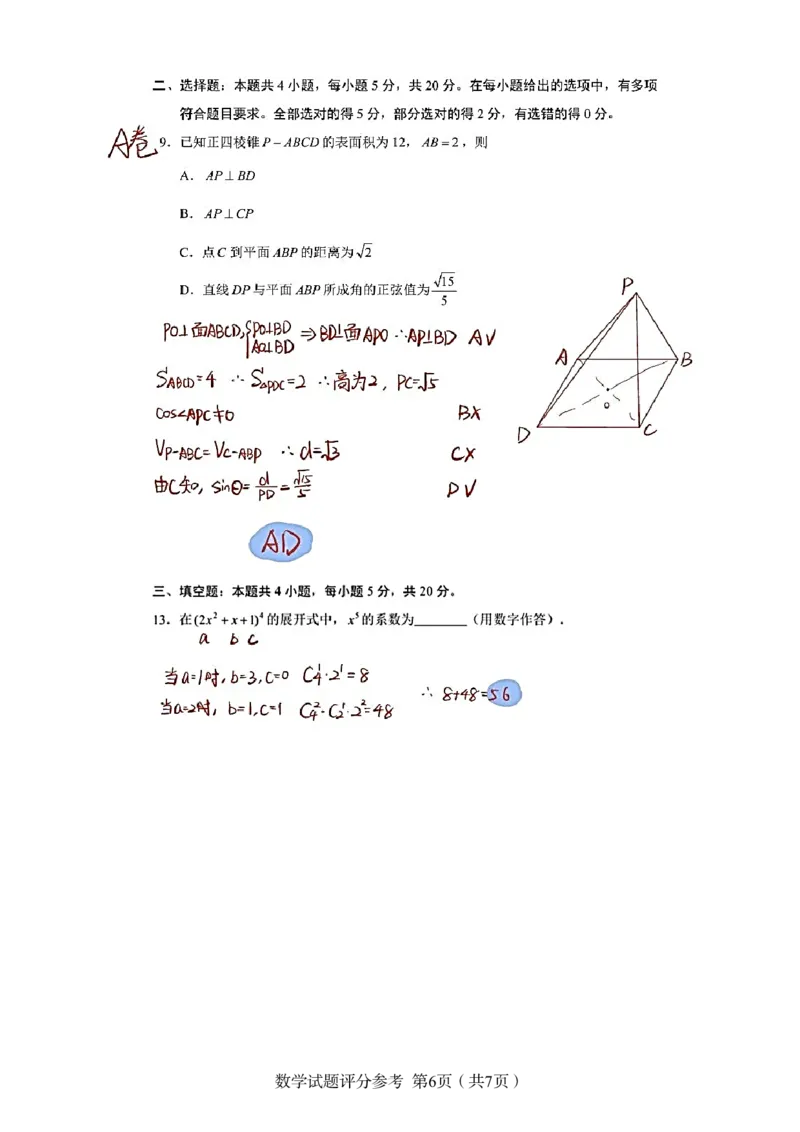 二、选择题：本题共 4 小题，每小题 5 分，共 20 分。在每小题给出的选项中，有多项
符合题目要求。全部选对的得 5 分，部分选对的得 2 分，有选错的得 0 分。
A卷
9．已知正四棱锥 P－ABCD 的表面积为 12，AB＝2，则
A．AP⊥BD
B．AP⊥CP
C．点 C 到平面 ABP 的距离为√2
D．直线 DP 与平面 ABP 所成角的正弦值为 √15/5
P
A
B
O
D
C
PO⊥面ABCD,{PO⊥BD AO⊥BD ⇒BD⊥面APO ∴AP⊥BD A√
S_ABCD=4 ∴S_△PDC=2 ∴高为2, PC=√5
cos∠APC≠0 B×
V_P-ABC=V_C-ABP ∴d=√3 C×
由C知, sinθ=d/PD=√15/5 D√
AD
三、填空题：本题共 4 小题，每小题 5 分，共 20 分。
13．在(2x²＋x＋1)⁴ 的展开式中，x⁵ 的系数为________（用数字作答）．
a b c
当a=1时, b=3, c=0 C₄¹·2¹=8
当a=2时, b=1, c=1 C₄²·C₂¹·2²=48
∴ 8+48=56
数学试题评分参考 第6页（共7页）